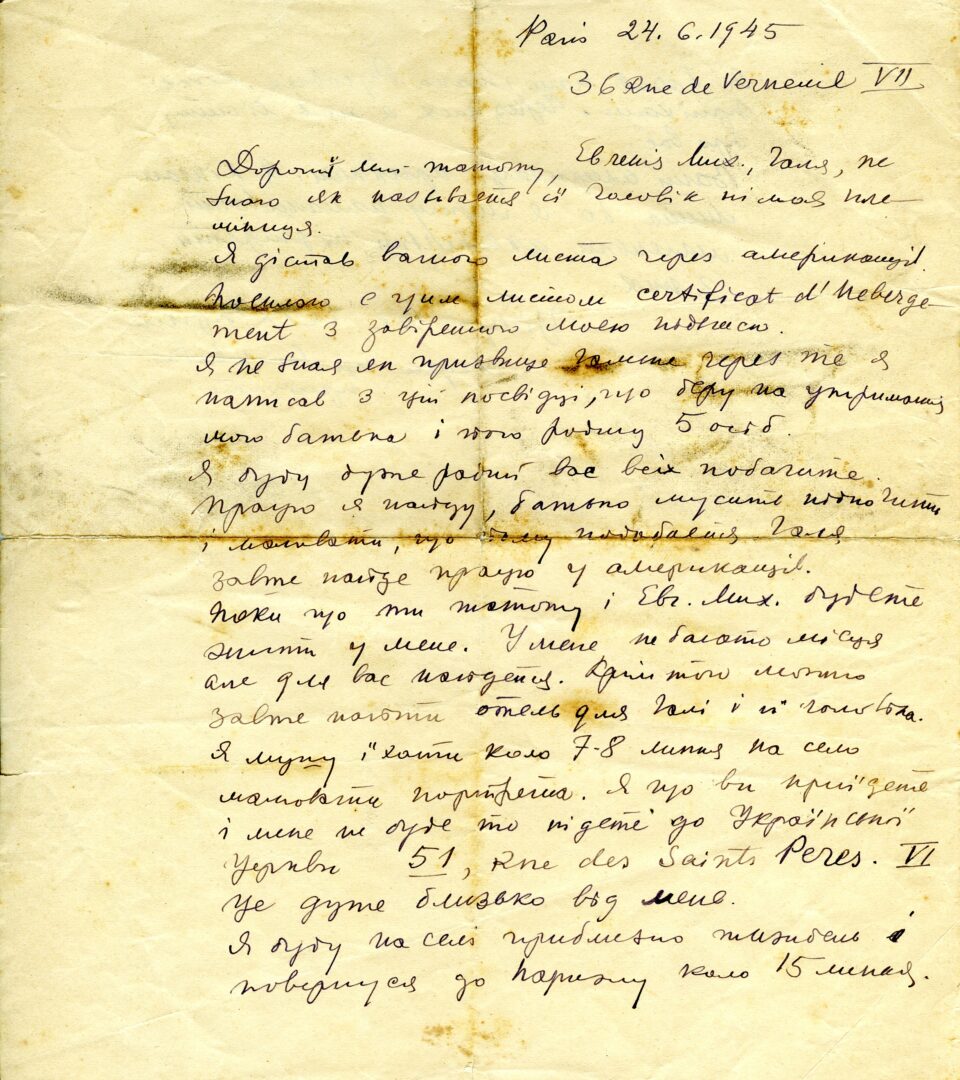 Paris 24.6.1945
36 Rue de Verneuil VII
Дорогий мій татому, Евгенія Мих., Галя, не
знаю як називается її чоловік ні моя пле-
мінниця.
Я дістав вашого листа через американців.
Посилаю с цим листом certificat d'heberge-
ment з завіреного моею підписю.
Я не знаю як призвище Галине через те я
написав з цій посвідці, що беру на утримання
мого батька і його родину 5 осіб.
Я буду дуже радий вас всіх побачите.
Працю я найду, батько мусить відпочити
і малювати, що йому подобается Галя
завте найде працю у американців.
Поки що ти татому і Евг. Мих. будете
жити у мене. У мене не багато місця
але для вас найдется. Крім того можно
завте найти отель для Галі і її чоловіка.
Я мушу їхати коло 7-8 липня на село
малювати портрета. Я що ви приїдете
і мене не буде то підете до Української
Церкви 51, Rue des Saints Peres. VI
Це дуже близько від мене.
Я буду на селі приблизно тиждень і
повернуся до Парижу коло 15 липня.